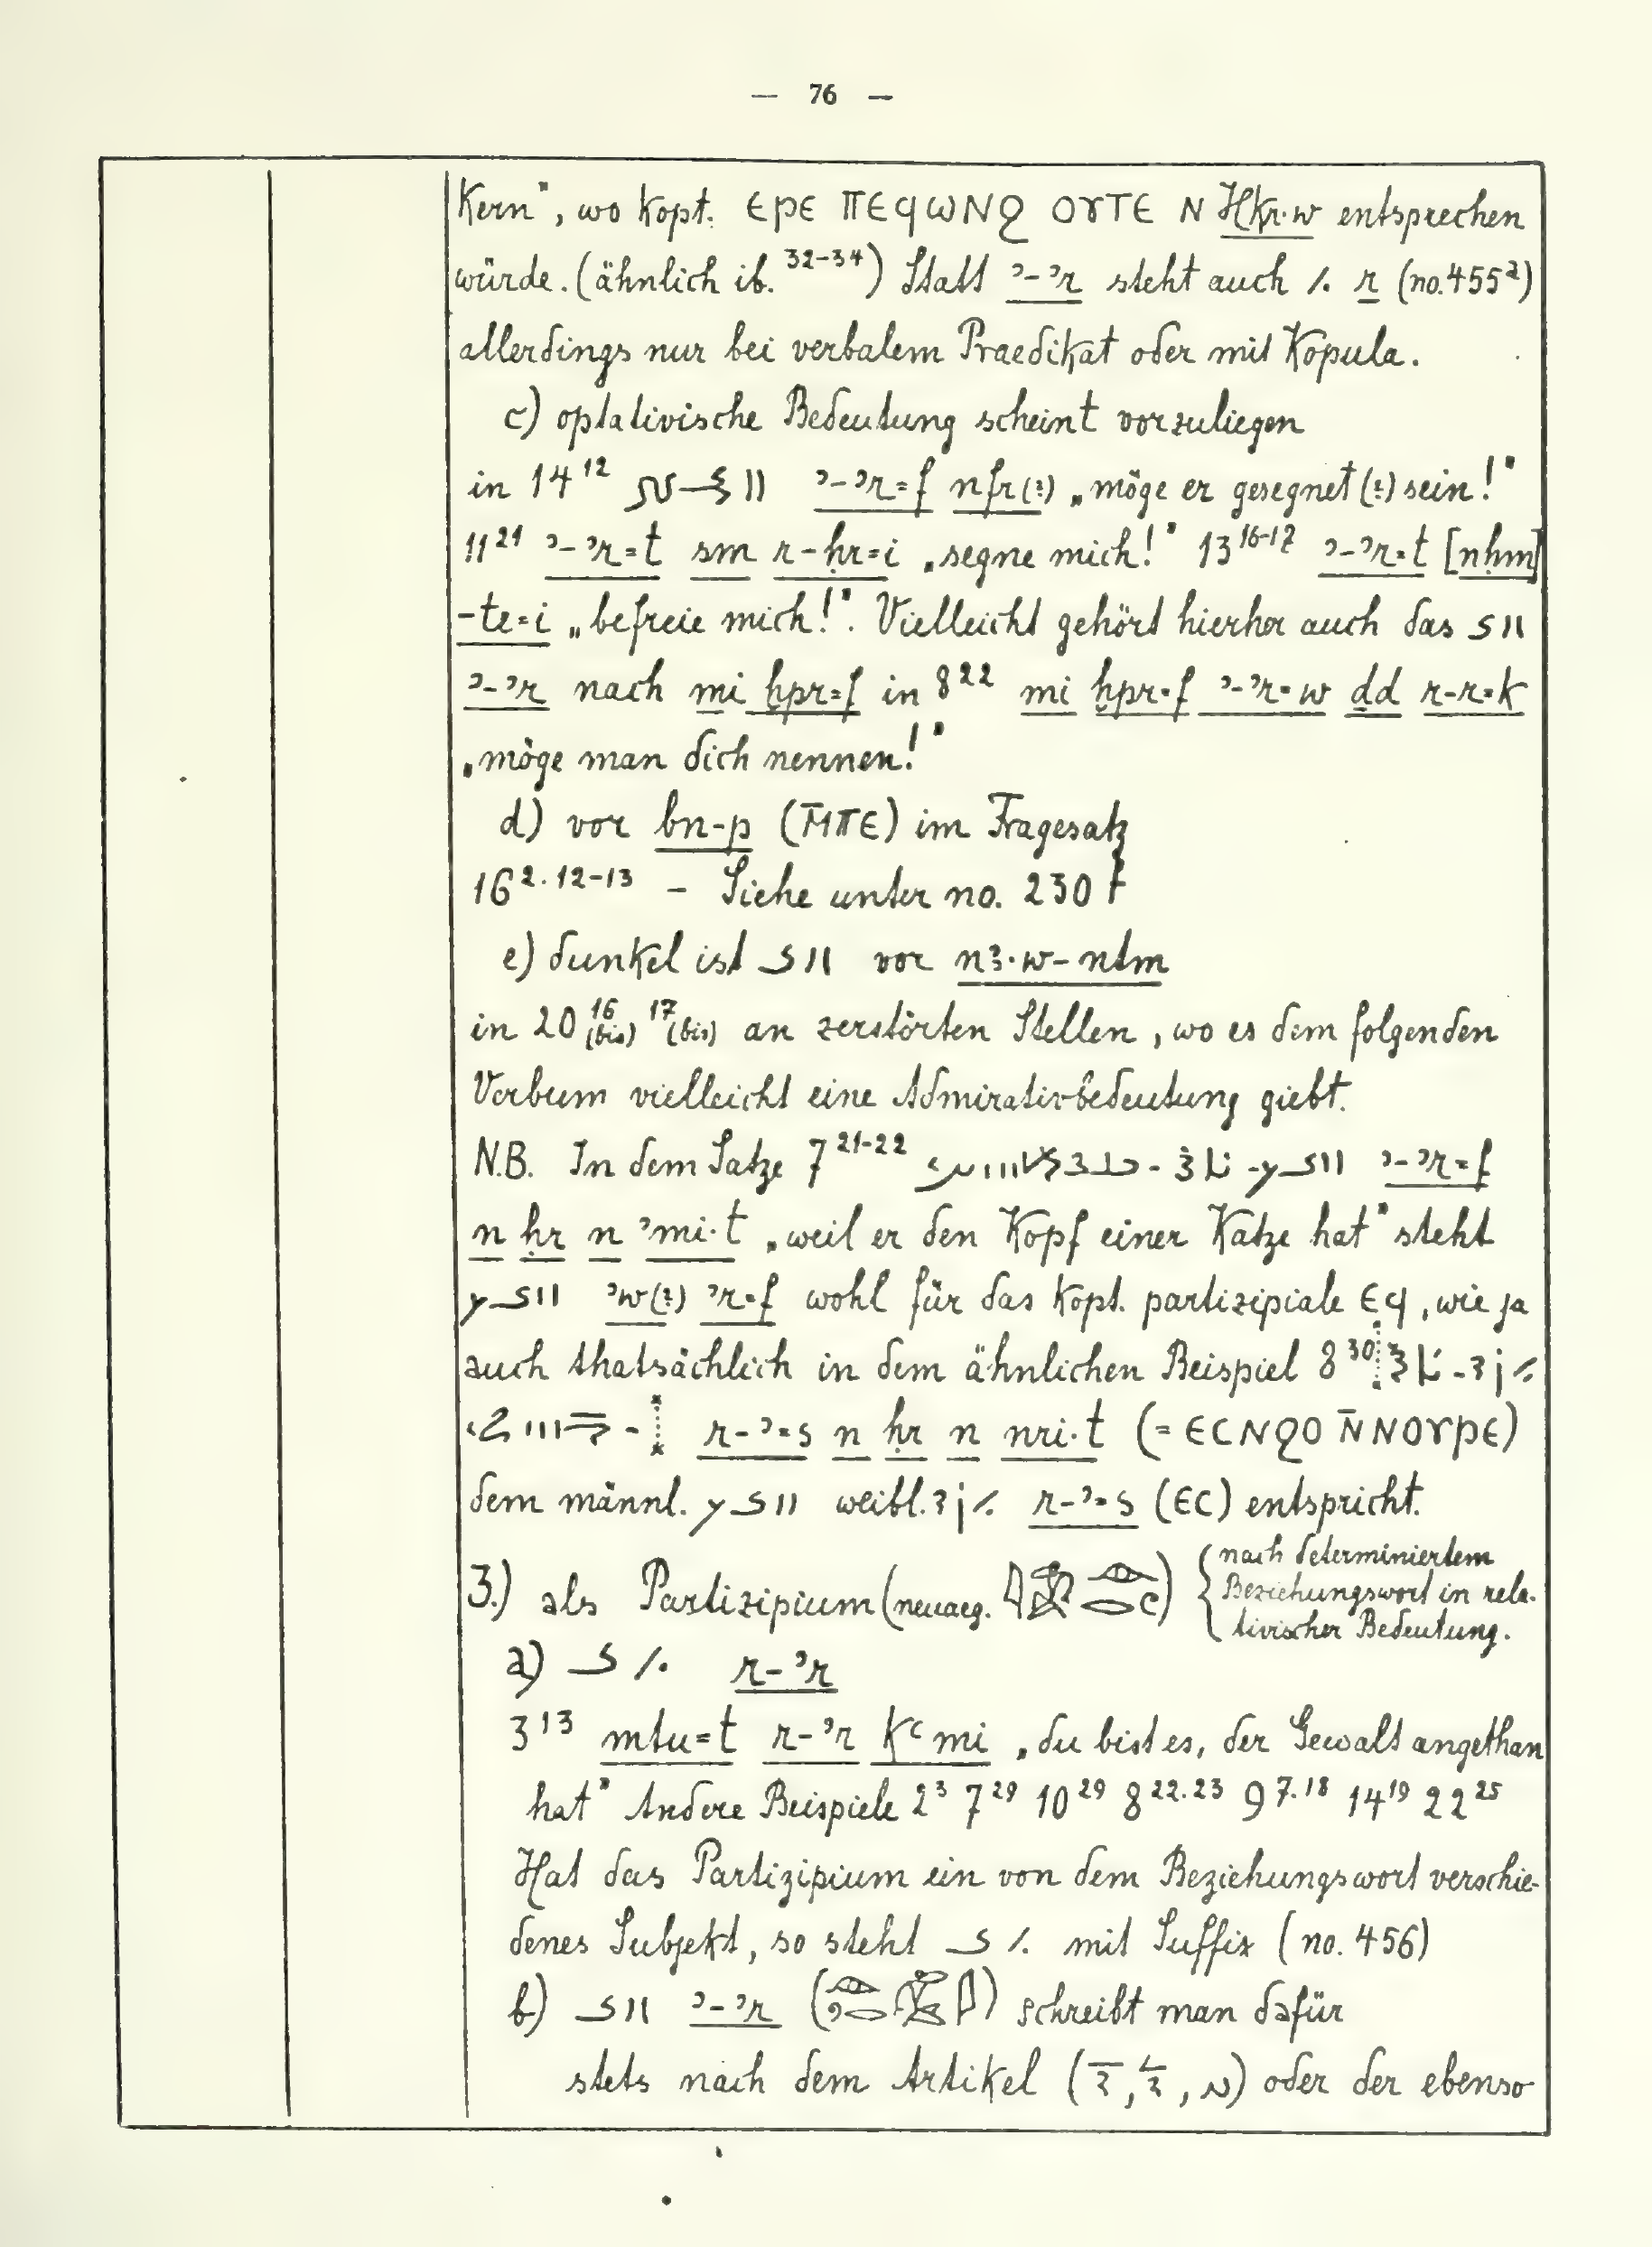 — 76 —
Kern", wo kopt. ЄРЄ ΠЄϤⲰΝϨ ΟΥΤЄ Ν Ḥkr·w entsprechen
würde. (ähnlich ib. 32-34) Statt ʾ-ʾr steht auch ⁒ r (no. 455²)
allerdings nur bei verbalem Praedikat oder mit Kopula.
c) optativische Bedeutung scheint vorzuliegen
in 14¹² ʾ-ʾr=f nfr(?) „möge er gesegnet (?) sein!"
11²¹ ʾ-ʾr=t sm r-ḥr=i „segne mich!" 13¹⁶⁻¹⁷ ʾ-ʾr=t [nḥm]
-te=i „befreie mich!". Vielleicht gehört hierher auch das
ʾ-ʾr nach mi ḫpr=f in 8²² mi ḫpr=f ʾ-ʾr=w dd r-r=k
„möge man dich nennen!"
d) vor bn-p (Μ̄ΠЄ) im Fragesatz
16².¹²⁻¹³ - Siehe unter no. 230
e) dunkel ist vor nꜣ·w-ntm
in 20 16 (bis) 17 (bis) an zerstörten Stellen, wo es dem folgenden
Verbum vielleicht eine Admirativbedeutung giebt.
N.B. In dem Satze 7²¹⁻²² ʾ-ʾr=f
n ḥr n ʾmi·t „weil er den Kopf einer Katze hat" steht
ʾw(?) ʾr=f wohl für das kopt. partizipiale ЄϤ, wie ja
auch thatsächlich in dem ähnlichen Beispiel 8³⁰
r-ʾ=s n ḥr n nri·t (= ЄСΝϨΟ Ν̄ΝΟΥΡЄ)
dem männl. weibl. r-ʾ=s (ЄС) entspricht.
3.) als Partizipium (neuaeg. ) { nach determiniertem
Beziehungswort in rela-
tivischer Bedeutung.
a) r-ʾr
3¹³ mtu=t r-ʾr kᶜmi „du bist es, der Gewalt angethan
hat" Andere Beispiele 2³ 7²⁹ 10²⁹ 8²²·²³ 9⁷·¹⁸ 14¹⁹ 22²⁵
Hat das Partizipium ein von dem Beziehungswort verschie-
denes Subjekt, so steht mit Suffix (no. 456)
b) ʾ-ʾr ( ) schreibt man dafür
stets nach dem Artikel ( , , ) oder der ebenso